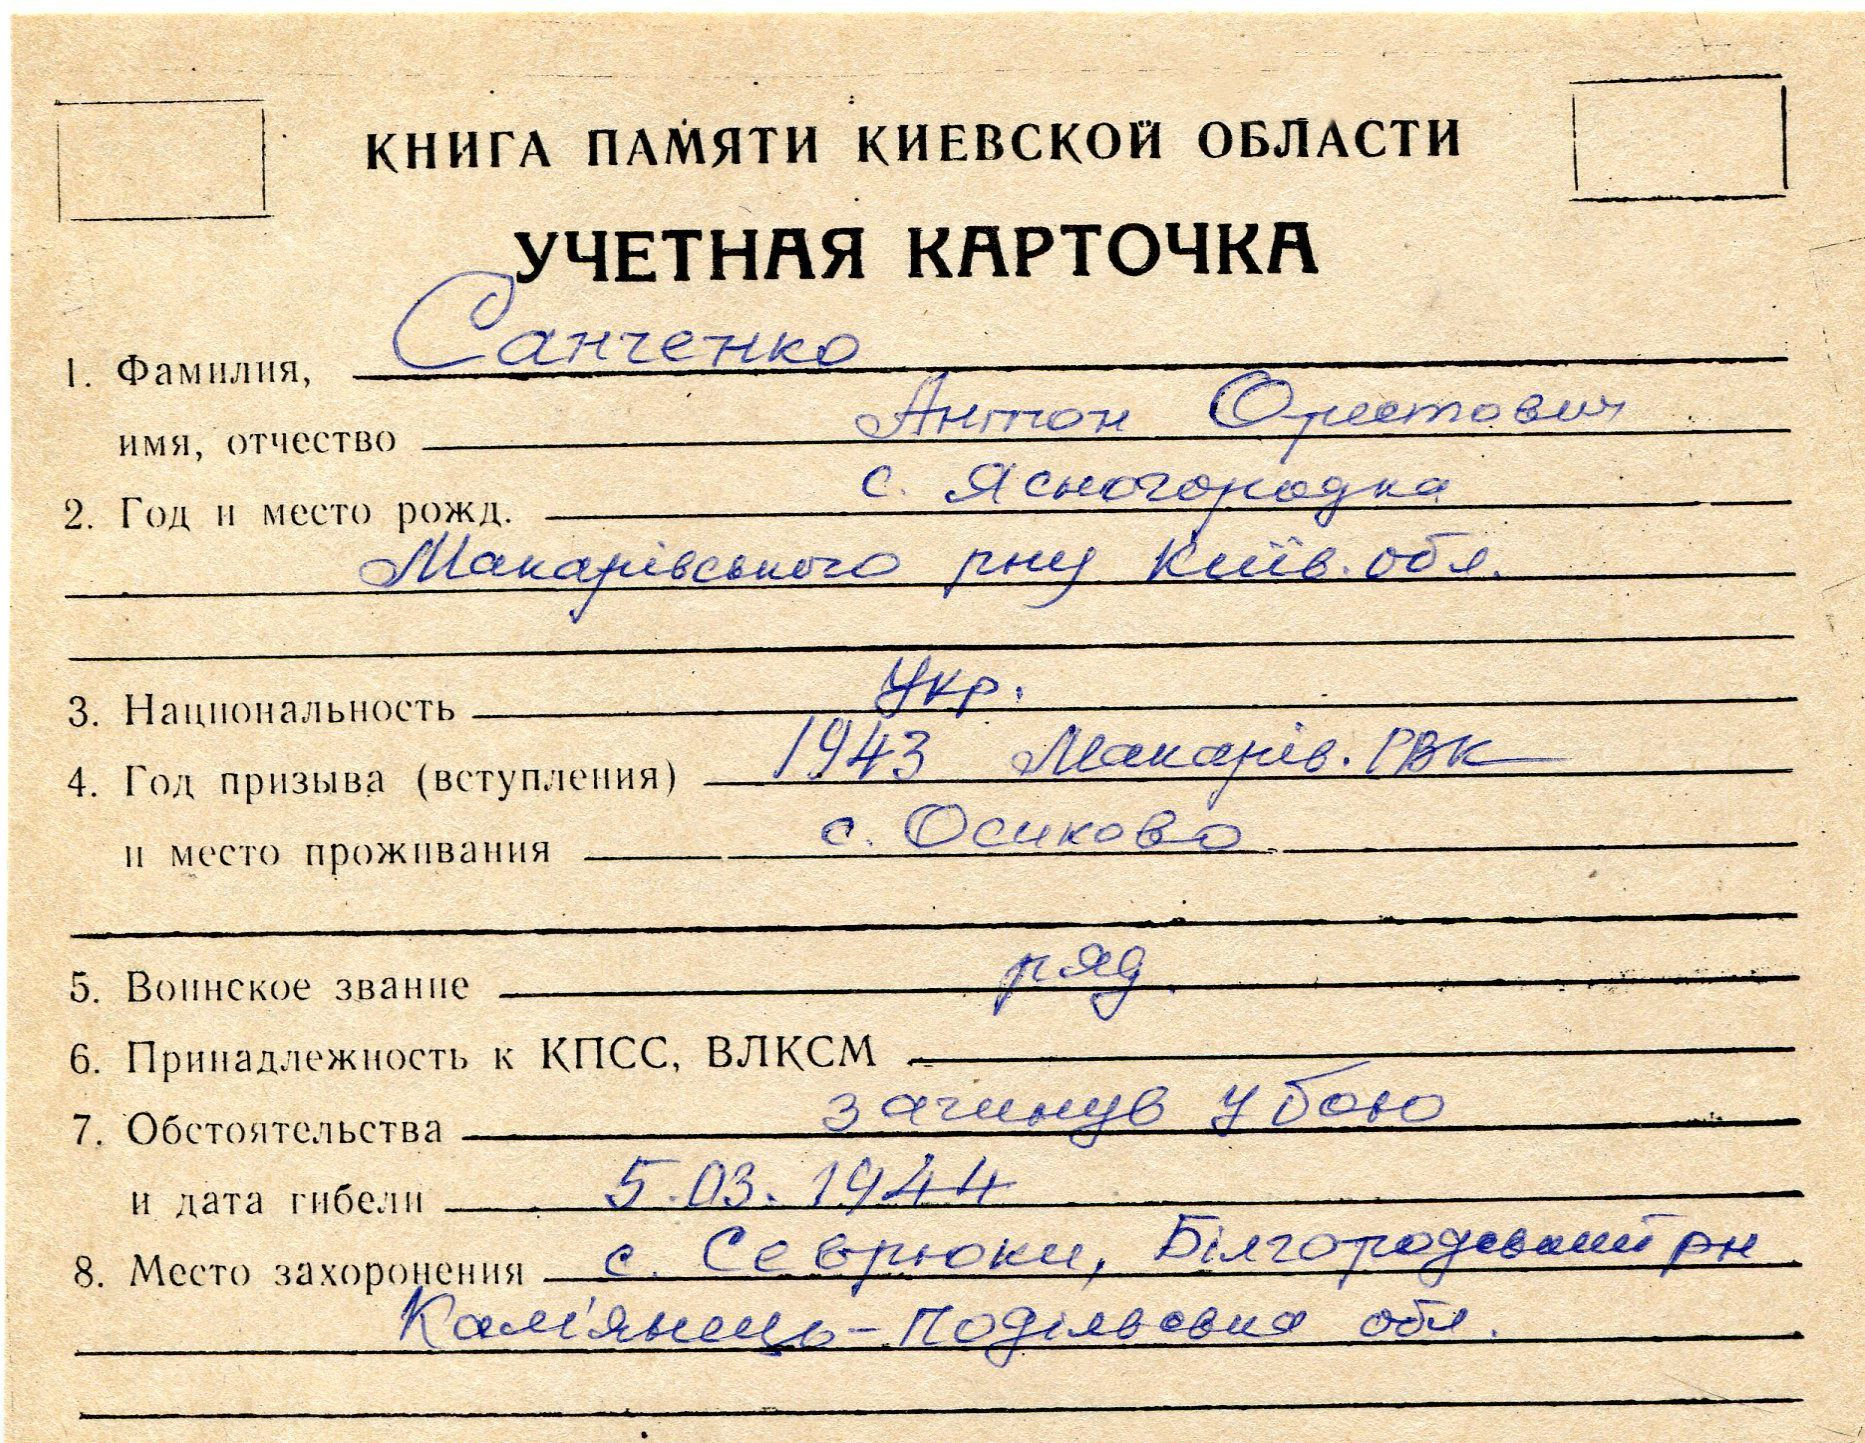 КНИГА ПАМЯТИ КИЕВСКОЙ ОБЛАСТИ
УЧЕТНАЯ КАРТОЧКА
1. Фамилия, Санченко
имя, отчество Антон Орестович
2. Год и место рожд. с. Ясногородка
Макарівського рну Київ. обл.
3. Национальность Укр.
4. Год призыва (вступления) 1943 Макарів. РВК
и место проживания с. Осиково
5. Воинское звание ряд.
6. Принадлежность к КПСС, ВЛКСМ
7. Обстоятельства загинув у бою
и дата гибели 5.03.1944
8. Место захоронения с. Севрюки, Білгородський рн
Кам'янець-Подільська обл.